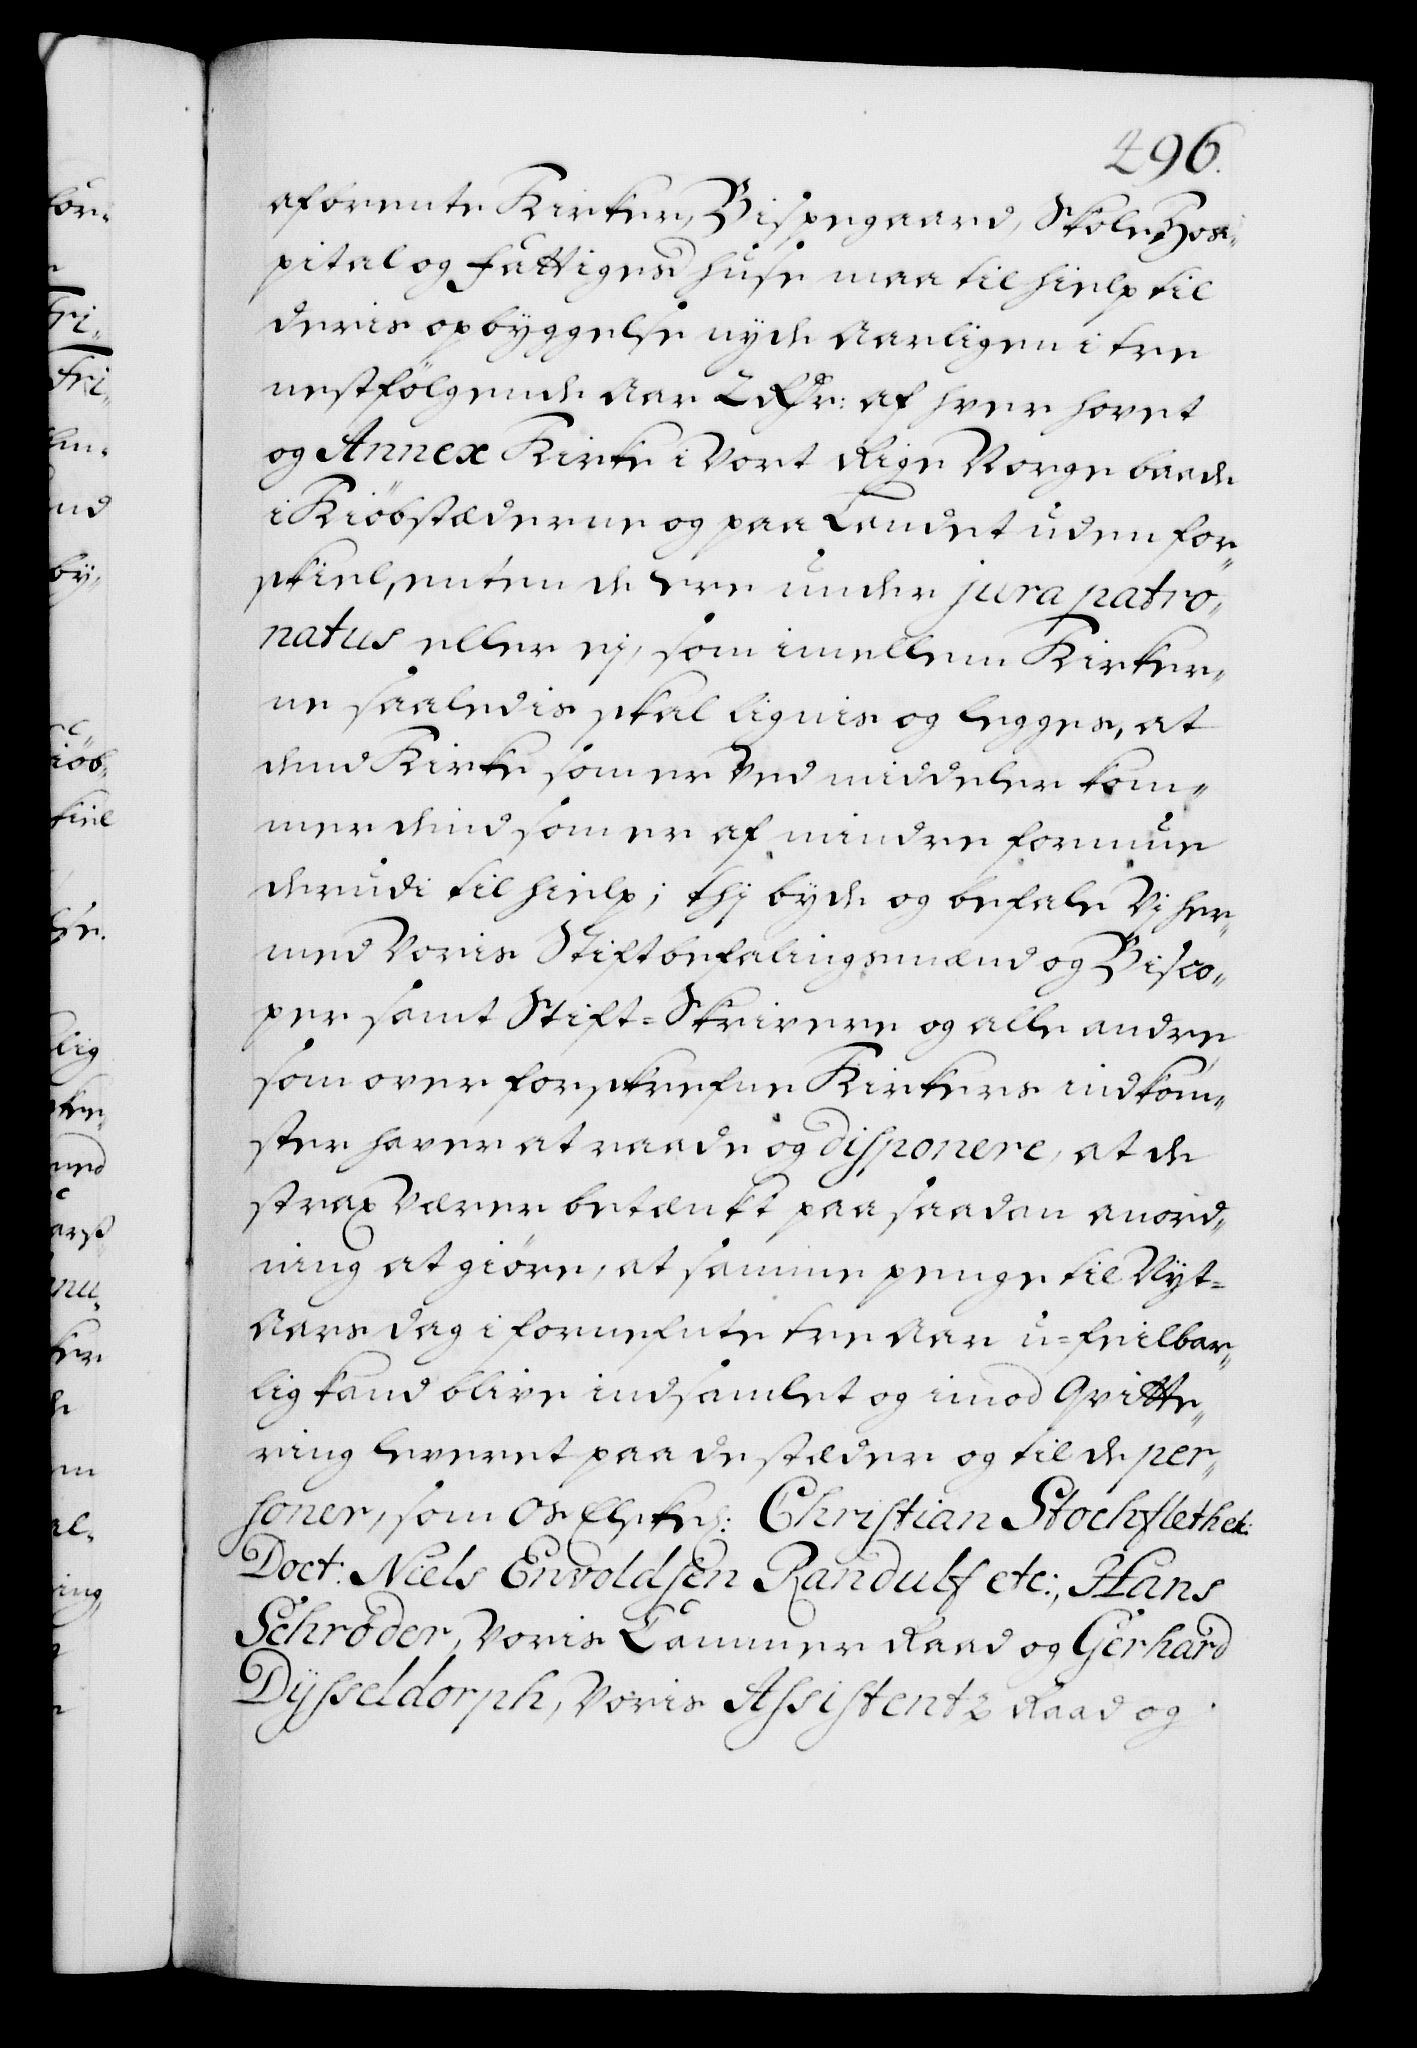 496.
afbrente Kirker, Bispegaard, Skole, Hos„
pital og Fattiges huse maa til hielp til
deris opbyggelse nyde Aarligen i tre
nestfölgende Aar 2 Rdr: af hver hovet
og Annex Kirke i Vort Rige Norge baade
i Kiöbstæderne og paa Landet uden for„
skiel, enten de ere under jura patro„
natus eller ej, som imellem Kirker„
ne saaledis skal lignis og legges, at
dend Kirke som er ved middeler kom„
mer dend som er af mindre formue
derudi til hielp; thj byde og befale Vj her„
med Voris Stiftbefalingsmænd og Bisco„
per samt Stift=Skrivere og alle andre
som over forskrefne Kirkers indkom„
ster haver at raade og disponere, at de
strax Værer betænkt paa saadan anord„
ning at giöre, at samme penge til Nyt=
Aars dag i fornefnte tre Aar u=feilbar„
lig kand blive indsamlet og imod Qvitte„
ring leveret paa de stæder og til de per„
soner, som Os Elsked: Christian Stochfleth etc:
Doct: Niels Envoldsen Randulf etc:, Hans
Schrøder, Voris Cammer Raad og Gerhard
Dysseldorph, Voris Assistentz Raad og
för„
Fri„
Fri„
ind
by,
kiöb„
lse.
lig
med
nu„
al„
ing,